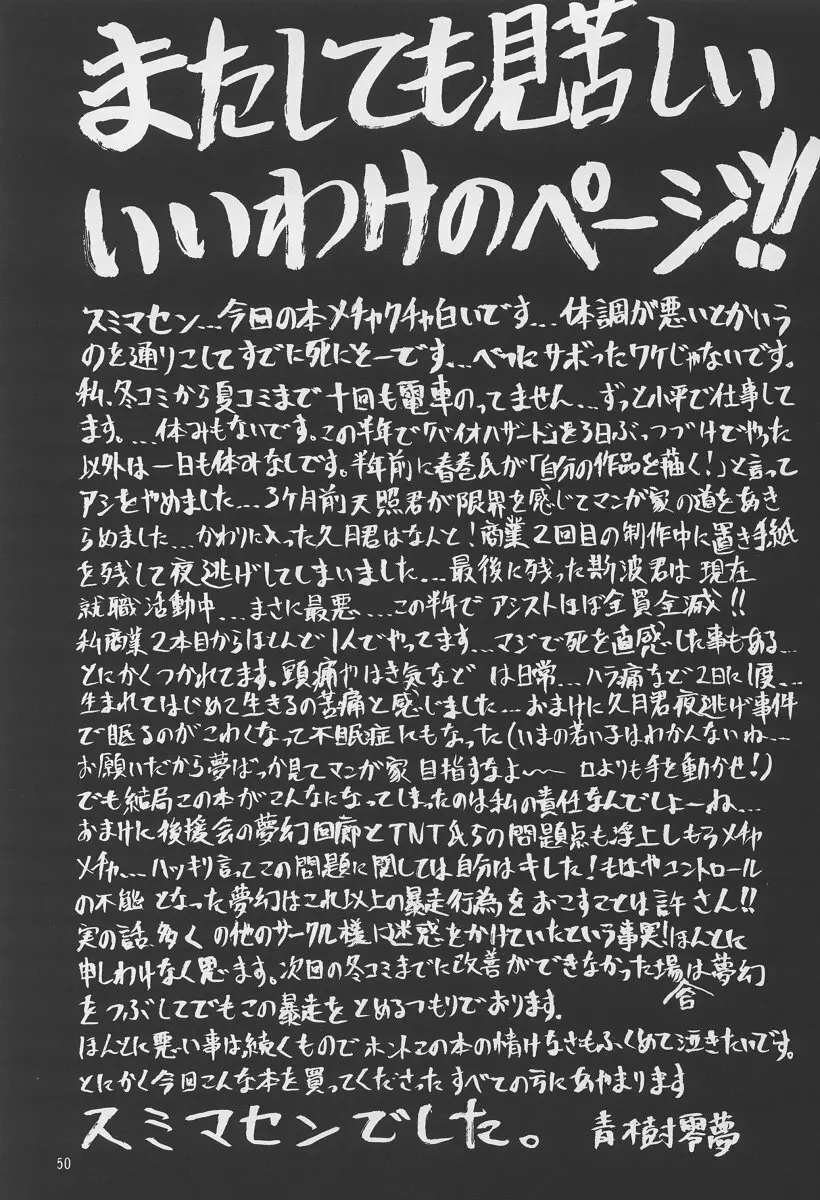 またしても見苦しい
いいわけのページ!!
スミマセン…今回の本メチャクチャ白いです…体調が悪いとかいう
のを通りこしてすでに死にそーです…べつにサボったワケじゃないです。
私、冬コミから夏コミまで十回も電車のってません…ずっと小平で仕事して
ます。…休みもないです。この半年で「バイオハザード」を3日ぶっつづけでやった
以外は一日も休みなしです。半年前に春巻氏が「自分の作品を描く!」と言って
アシをやめました…3ケ月前天照君が限界を感じてマンガ家の道をあき
らめました…かわりに入った久月君はなんと!商業2回目の制作中に置き手紙
を残して夜逃げしてしまいました…最後に残った斯波君は現在
就職活動中…まさに最悪…この半年でアシストほぼ全員全滅!!
私商業2本目からほとんど1人でやってます…マジで死を直感した事もある…
とにかくつかれてます。頭痛やはき気などは日常…ハラ痛など2日に1度…
生まれてはじめて生きるの苦痛と感じました…おまけに久月君夜逃げ事件
で眠るのがこわくなって不眠症にもなった(いまの若い子はわかんないね…
お願いだから夢ばっか見てマンガ家目指すなよ〜〜口よりも手を動かせ!)
でも結局この本がこんなになってしまったのは私の責任なんでしょーね…
おまけに後援会の夢幻回廊とTNT氏らの問題点も浮上しもうメチャ
メチャ…ハッキリ言ってこの問題に関しては自分はキした!もはやコントロール
の不能となった夢幻はこれ以上の暴走行為をおこすことは許さん!!
実の話多くの他のサークル様に迷惑をかけていたという事実!ほんとに
申しわけなく思います。次回の冬コミまでに改善ができなかった場合は夢幻
をつぶしてでもこの暴走をとめるつもりでおります。
ほんとに悪い事は続くものでホントこの本の情けなさもふくめて泣きたいです。
とにかく今回こんな本を買ってくださったすべての方にあやまります
スミマセンでした。 青樹零夢
50